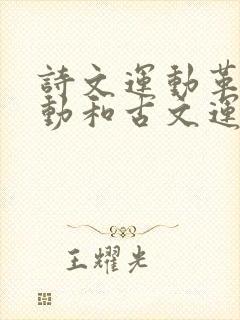 詩文運動革
動和古文運
王耀光